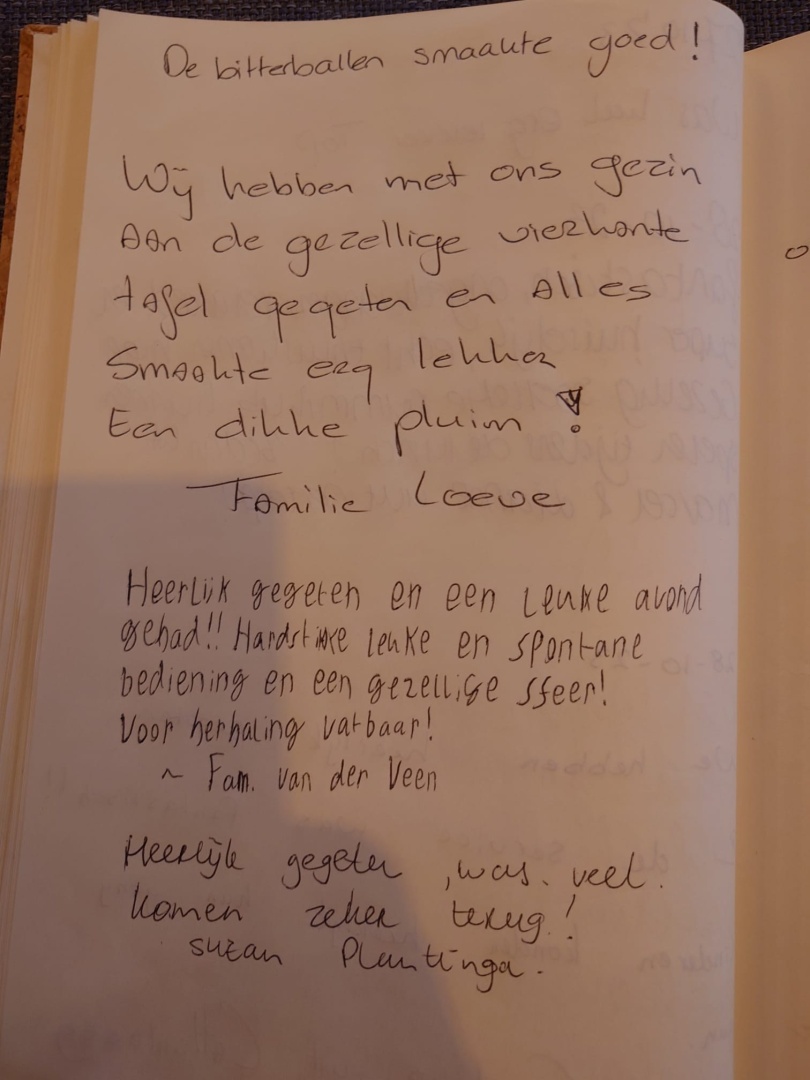 De bitterballen smaakte goed!
Wij hebben met ons gezin
aan de gezellige vierkante
tafel gegeten en alles
Smaakte erg lekker
Een dikke pluim!
Familie Loeve
Heerlijk gegeten en een leuke avond
gehad!! Hardstikke leuke en spontane
bediening en een gezellige sfeer!
Voor herhaling vatbaar!
~ Fam. van der Veen
Heerlijk gegeten, was. veel.
komen zeker terug!
suzan Plantinga.